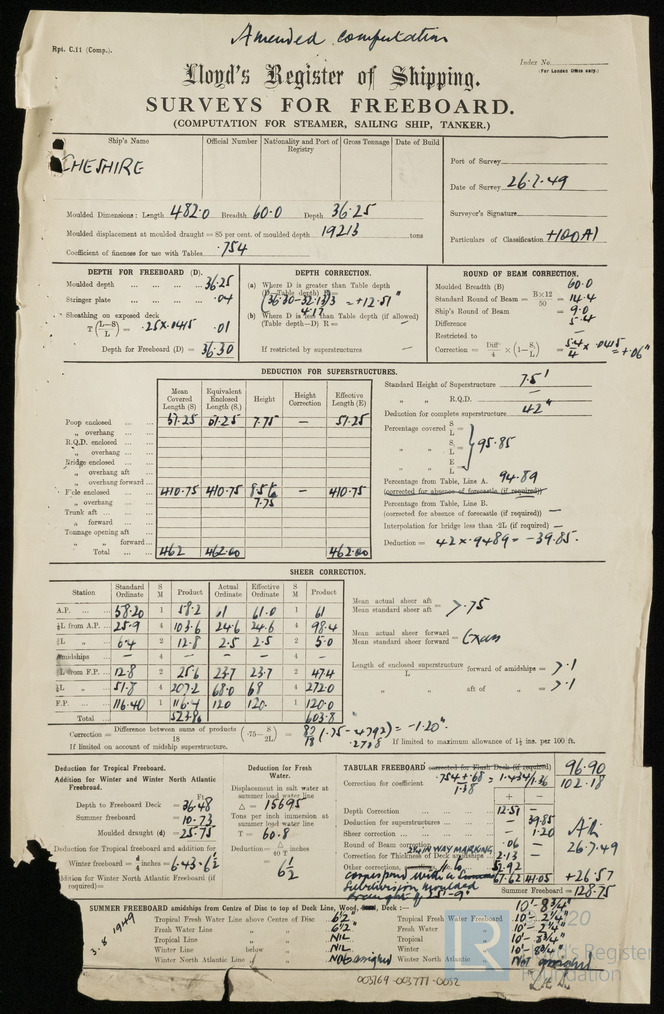 Amended computation
Rpt. C.11 (Comp.).
Index No.
(For London Office only.)
Lloyd's Register of Shipping.
SURVEYS FOR FREEBOARD.
(COMPUTATION FOR STEAMER, SAILING SHIP, TANKER.)
Ship's Name Official Number Nationality and Port of Registry Gross Tonnage Date of Build
CHESHIRE
Port of Survey
Date of Survey 26.7.49
Surveyor's Signature
Particulars of Classification +100A1
Moulded Dimensions: Length 482.0 Breadth 60.0 Depth 36.25
Moulded displacement at moulded draught = 85 per cent. of moulded depth 19213 tons
Coefficient of fineness for use with Tables .754
DEPTH FOR FREEBOARD (D).
Moulded depth 36.25
Stringer plate .04
Sheathing on exposed deck
T (L-S/L) = .25 x .0415 .01
Depth for Freeboard (D) = 36.30
DEPTH CORRECTION.
(a) Where D is greater than Table depth
(D-Table depth) R =
(36.30-32.13)3 = +12.51"
4.17
(b) Where D is less than Table depth (if allowed)
(Table depth-D) R =
If restricted by superstructures
ROUND OF BEAM CORRECTION.
Moulded Breadth (B) 60.0
Standard Round of Beam = B×12/50 = 14.4
Ship's Round of Beam = 9.0
Difference 5.4
Restricted to
Correction = Diff/4 × (1-S/L) = 5.4/4 x .0415 = +.06"
DEDUCTION FOR SUPERSTRUCTURES.
Mean Covered Length (S) Equivalent Enclosed Length (S₁) Height Height Correction Effective Length (E)
Poop enclosed 51.25 51.25 7.75 — 51.25
„ overhang
R.Q.D. enclosed
„ overhang
Bridge enclosed
„ overhang aft
„ overhang forward
F'cle enclosed 410.75 410.75 8.5 to 7.75 — 410.75
„ overhang
Trunk aft
„ forward
Tonnage opening aft
„ „ forward
Total 462 462.00 462.00
Standard Height of Superstructure 7.5'
„ „ R.Q.D. —
Deduction for complete superstructure 42"
Percentage covered S/L =
„ „ S₁/L = } 95.85
„ „ E/L =
Percentage from Table, Line A. 94.89
(corrected for absence of forecastle (if required))
Percentage from Table, Line B.
(corrected for absence of forecastle (if required) —
Interpolation for bridge less than ·2L (if required) —
Deduction = 42 x .9489 = -39.85.
SHEER CORRECTION.
Station Standard Ordinate S M Product Actual Ordinate Effective Ordinate S M Product
A.P. 58.20 1 58.2 61 61.0 1 61
⅙L from A.P. 25.9 4 103.6 24.6 24.6 4 98.4
⅓L „ 6.4 2 12.8 2.5 2.5 2 5.0
Amidships — 4 — — — 4 —
⅓L from F.P. 12.8 2 25.6 23.7 23.7 2 47.4
⅙L „ 51.8 4 207.2 68.0 68 4 272.0
F.P. 116.40 1 116.4 120 120. 1 120.0
Total 523.80 603.8
Mean actual sheer aft
Mean standard sheer aft = >.75
Mean actual sheer forward
Mean standard sheer forward = Excess
Length of enclosed superstructure / L forward of amidships = >.1
„ „ aft of „ = >.1
Correction = Difference between sums of products / 18 (·75- S/2L) = 80/18 (.75-.4792) = -1.20".
.2708
If limited on account of midship superstructure.
If limited to maximum allowance of 1½ ins. per 100 ft.
Deduction for Tropical Freeboard.
Addition for Winter and Winter North Atlantic Freeboard.
Ft
Depth to Freeboard Deck = 36.48
Summer freeboard = 10.73
Moulded draught (d) = 25.75
Deduction for Tropical freeboard and addition for
Winter freeboard = d/4 inches = 6.43 = 6½
Addition for Winter North Atlantic Freeboard (if required) =
Deduction for Fresh Water.
Displacement in salt water at summer load water line
Δ = 15695
Tons per inch immersion at summer load water line
T = 60.8
Deduction = Δ/40 T inches
= 6½
TABULAR FREEBOARD corrected for Flush Deck (if required) 96.90
Correction for coefficient .754+.68/1.36 = 1.434/1.36 102.18
+ —
Depth Correction 12.51 —
Deduction for superstructures — 39.85
Sheer correction — 1.20
Round of Beam correction .06 —
Correction for Thickness of Deck amidships 2.13 —
Other corrections, 52.92
67.62 41.05 +26.57
Summer Freeboard = 128.75
26.7.49
3.8.1949
SUMMER FREEBOARD amidships from Centre of Disc to top of Deck Line, Wood, Steel, Deck:— 10'-8¾"
Tropical Fresh Water Line above Centre of Disc 6½" Tropical Fresh Water Freeboard 10'-2¼"
Fresh Water Line „ „ 6½" Fresh Water „ 10'-2¼"
Tropical Line „ „ NIL Tropical „ 10'-8¾"
Winter Line below „ „ NIL Winter „ 10'-8¾"
Winter North Atlantic Line „ „ Not assigned Winter North Atlantic „ Not assigned
003769-003777-0052
LR
2020
Lloyd's Register
Foundation